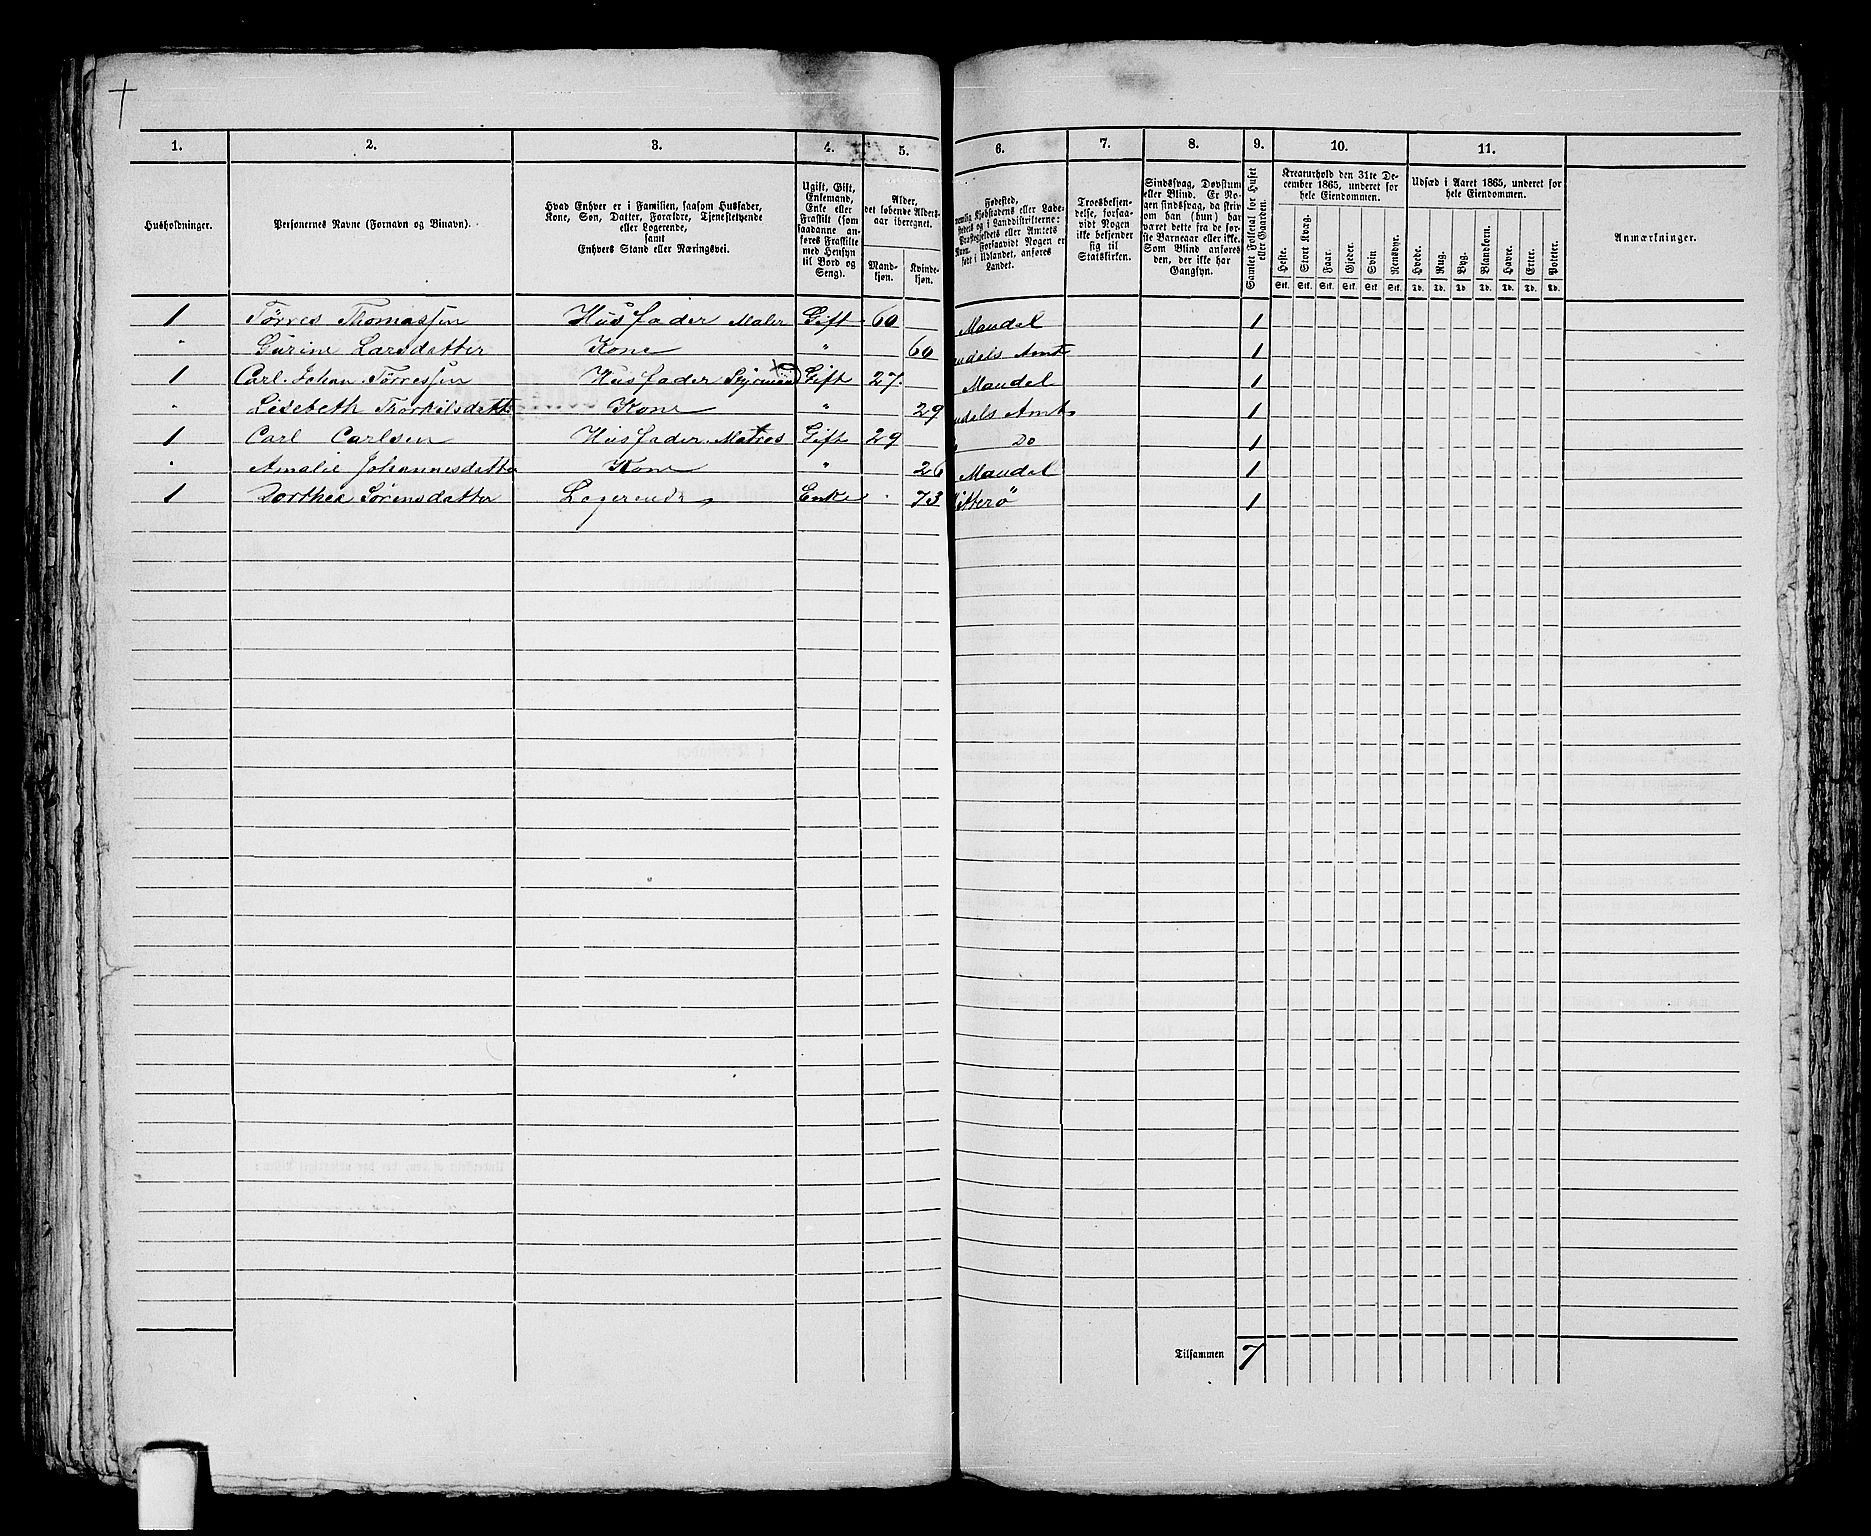 1. 2. 3. 4. 5. 6. 7. 8. 9. 10. 11.
Husholdninger.
Personernes Navne (Fornavn og Binavn).
Hvad Enhver er i Familien, saasom Husfader,
Kone, Søn, Datter, Forældre, Tjenestetyende
eller Logerende,
samt
Enhvers Stand eller Næringsvei.
Ugift, Gift,
Enkemand,
Enke eller
Fraskilt (som
saadanne an-
føres Fraskilte
med Hensyn
til Bord og
Seng).
Alder,
det løbende Alders-
aar iberegnet.
Mand-
kjøn.
Kvinde-
kjøn.
Fødested,
Kjøbstadens eller Lade-
stedets og i Landdistrikterne:
Præstegjeldets eller Amtets
Navn. Forsaavidt Nogen er
født i Udlandet, anføres
Landet.
Troesbekjen-
delse, forsaa-
vidt Nogen
ikke bekjender
sig til
Statskirken.
Sindssvag, Døvstum
eller Blind. Er No-
gen sindssvag, da skriv
om han (hun) har
været dette fra de før-
ste Barneaar eller ikke.
Som Blind anføres
den, der ikke har
Gangsyn.
Samlet Folketal for Huset
eller Gaarden.
Kreaturhold den 31te De-
cember 1865, underet for
hele Eiendommen.
Heste. Stort Kvæg. Faar. Gjeder. Svin Rensdyr.
Stk. Stk. Stk. Stk. Stk. Stk.
Udsæd i Aaret 1865, underet for
hele Eiendommen.
Hvede. Rug. Byg. Blandkorn. Havre. Erter. Poteter.
Td. Td. Td. Td. Td. Td. Td.
Anmærkninger.
1 Tørres Thomassen Husfader Maler Gift 60 Mandal 1
" Gurine Larsdatter Kone " 60 ndals Amt 1
1 Carl Johan Tørressen Husfader Styrmand Gift 27 Mandal 1
" Lisebeth Thorkilsdatt Kone " 29 ndals Amt 1
1 Carl Carlsen Husfader Matros Gift 29 Do 1
" Amalie Johannesdatter Kone " 26 Mandal 1
1 Dorthea Sørensdatter Logerende Enke 73 Hitterö 1
Tilsammen 7